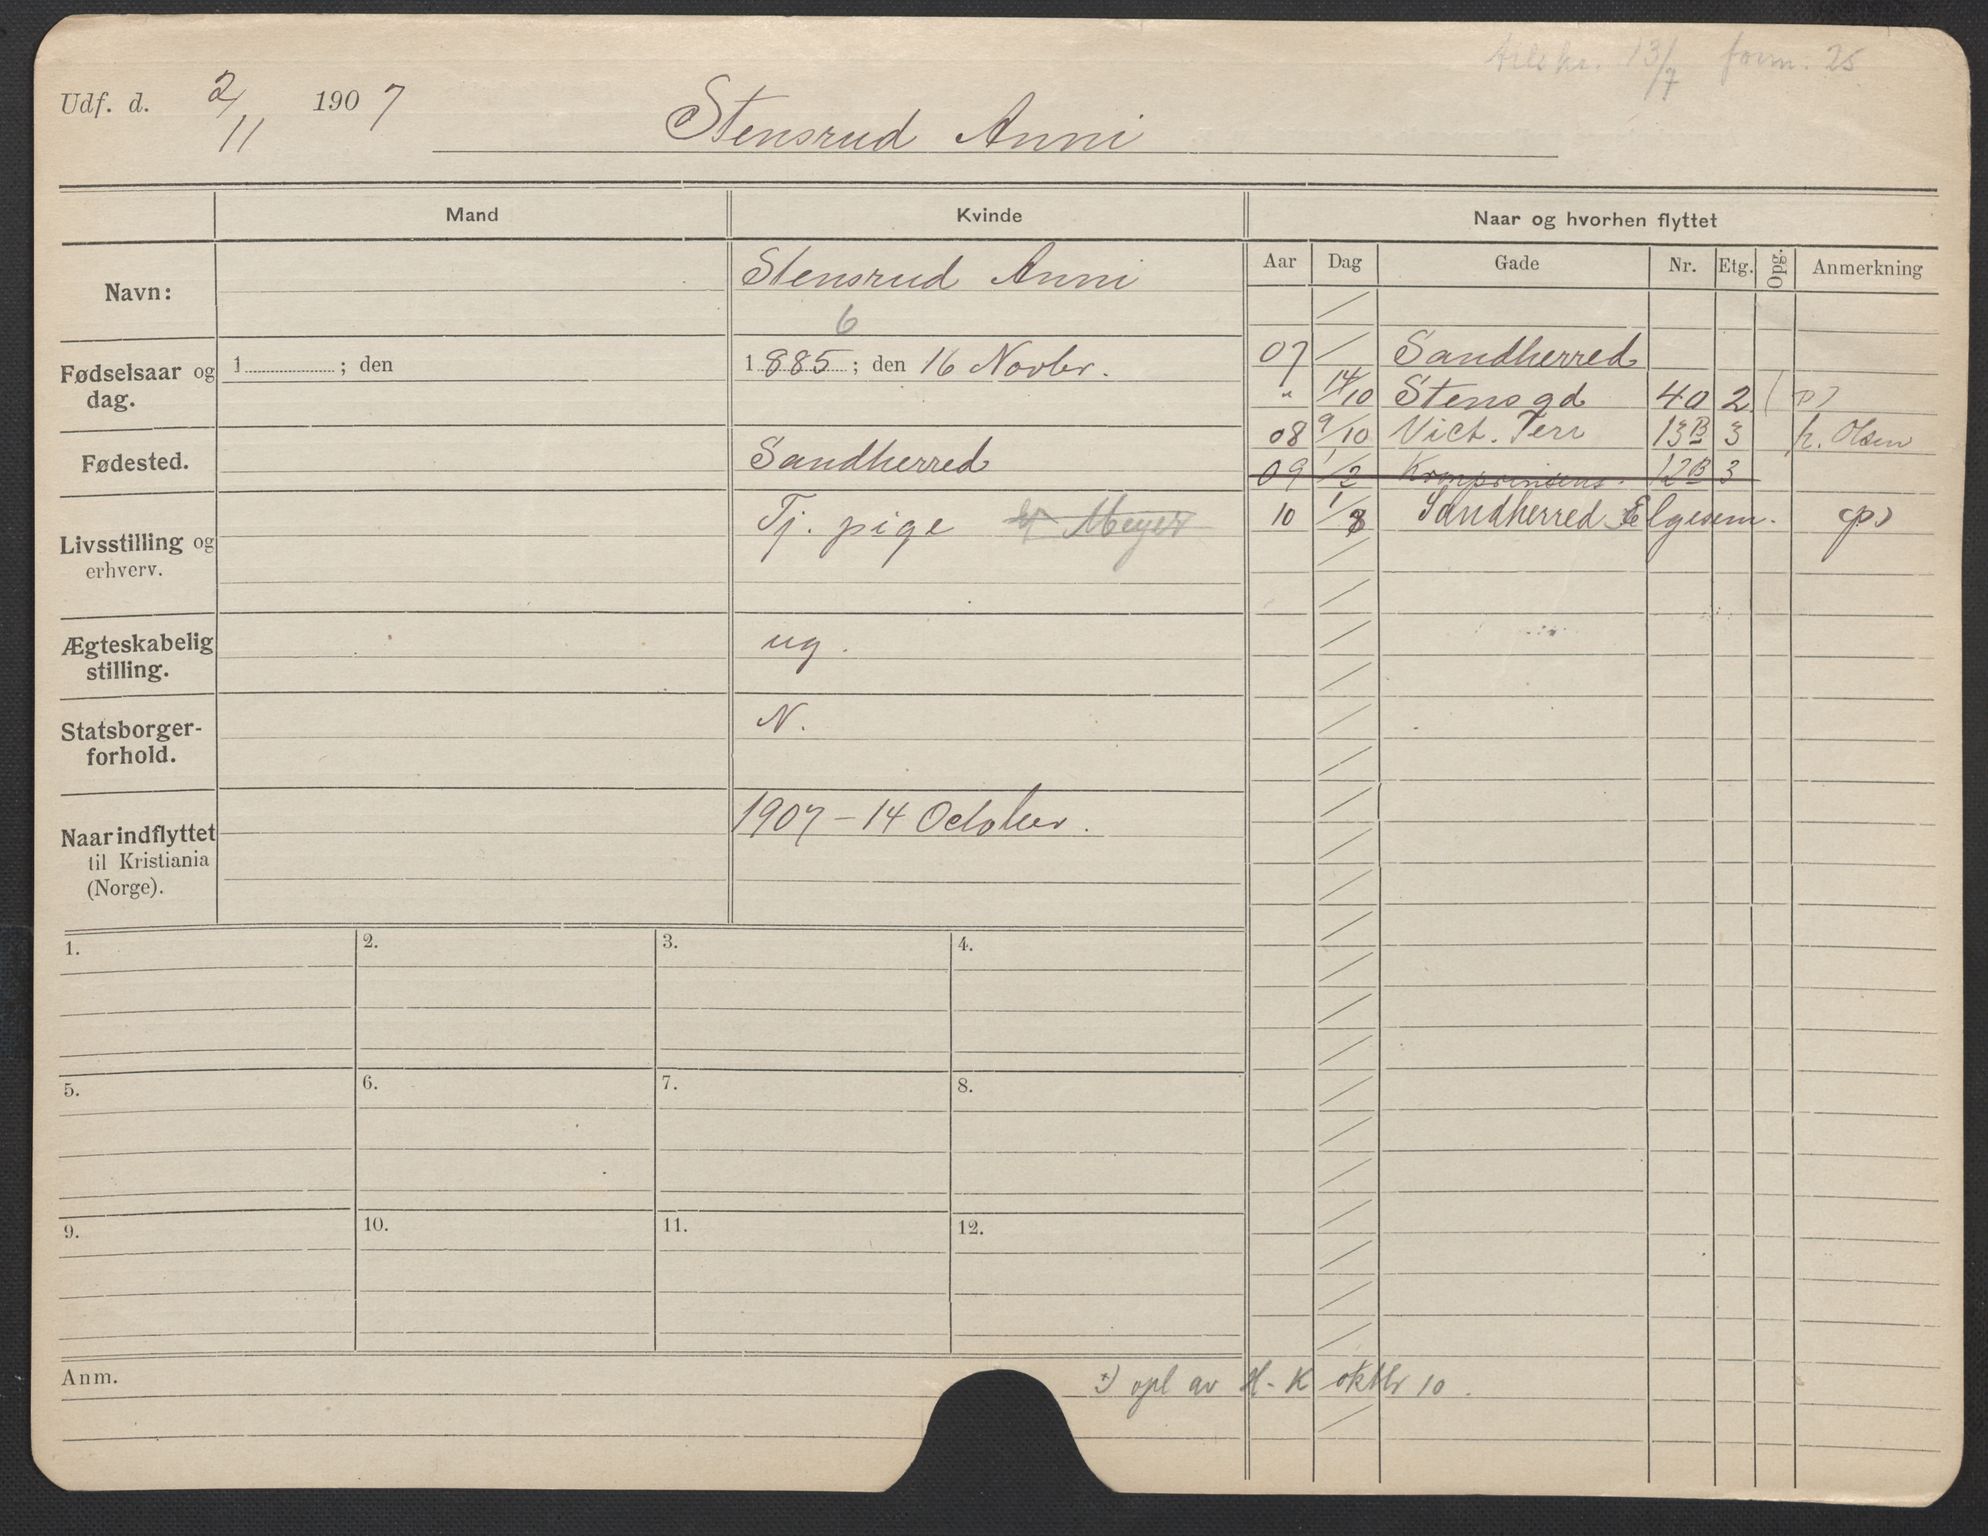 13/7 form. 25
Udf. d. 2/11 1907 Stensrud Anni
Mand Kvinde Naar og hvorhen flyttet
Aar Dag Gade Nr. Etg. Opg. Anmerkning
Navn: Stensrud Anni
6
Fødselsaar og dag. 1 ; den 1885 ; den 16 Novbr.
Fødested. Sandherred
Livsstilling og erhverv. Tj. pige Meyer
Ægteskabelig stilling. ug.
Statsborgerforhold. N.
Naar indflyttet til Kristiania (Norge). 1907 - 14 October.
07 / Sandherred
" 14/10 Stensgd 40 2 p)
08 9/10 Vict. Terr 13B 3 h. Olsen
09 1/2 Kronprinsens. 12B 3
10 1/8 Sandherred Elgesem. p)
1. 2. 3. 4.
5. 6. 7. 8.
9. 10. 11. 12.
Anm. opl av H-K oktbr 10.